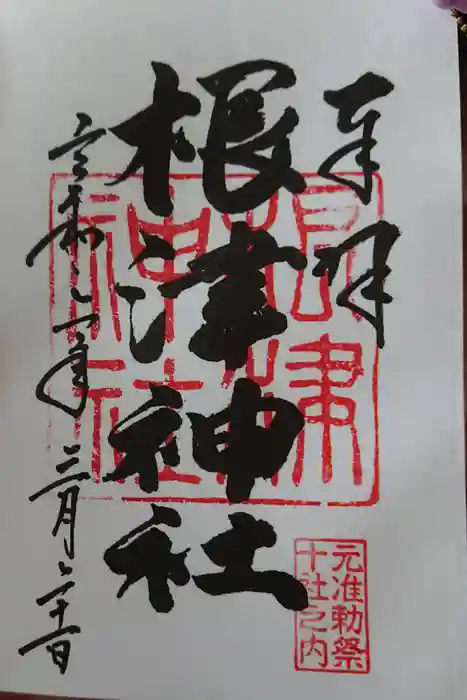 奉拝
根津神社
令和六年三月二十一日
根津
神社
元准勅祭
十社之内